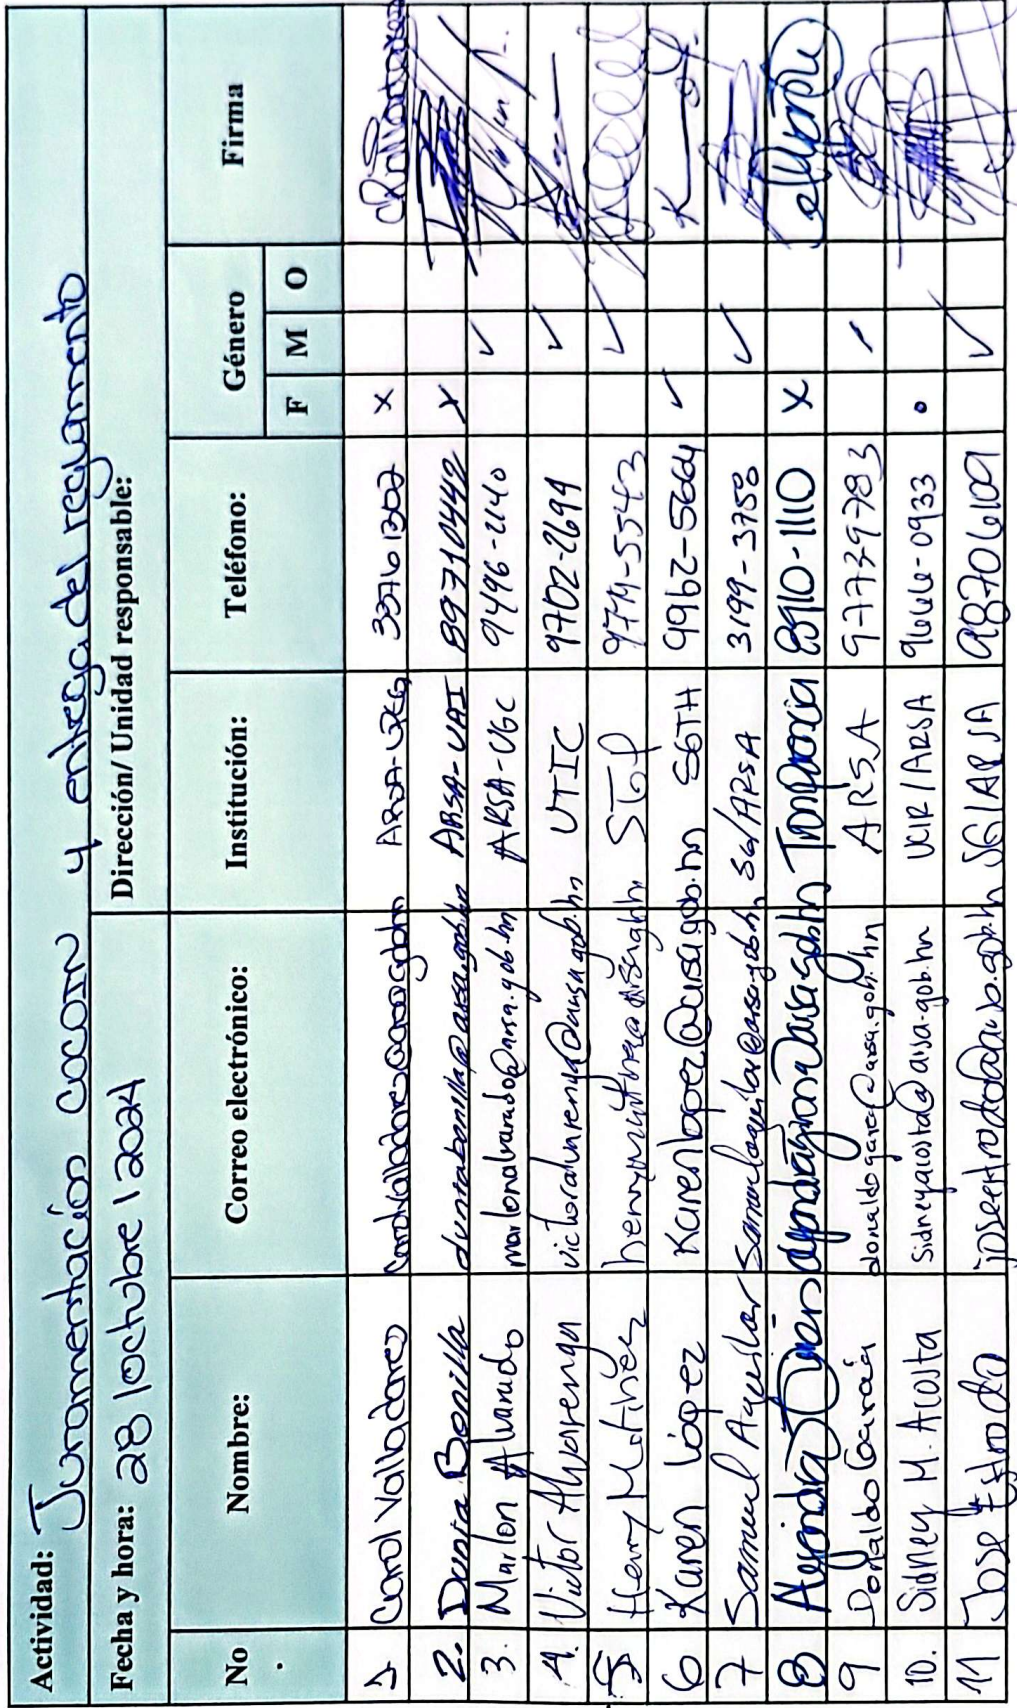 Actividad: Juramentación COCOIN y entrega del reglamento
Fecha y hora: 28/octubre/2024 Dirección/ Unidad responsable:
No. Nombre: Correo electrónico: Institución: Teléfono: Género Firma
F M O
1 Carol Valladares ARSA- 33761302 X
2. Dunia Bonilla duniabonilla@arsa.gob.hn ARSA-UAI 89710442 X
3. Marlon Alvarado marlonalvarado@arsa.gob.hn ARSA-UGC 9496-2140 ✓
4. Victor Alvarenga victoralvarenga@arsa.gob.hn UTIC 9702-2694 ✓
5 Henry Martinez 9774-5543 ✓
6 Karen López Karenlopez@arsa.gob.hn SGTH 9962-5664 ✓
7 Samuel Aguilar Samuelaguilar@arsa.gob.hn SG/ARSA 3199-3758 ✓
8 Alejandra 8910-1110 X
9 Donaldo Garcia donaldogarcia@arsa.gob.hn ARSA 97739783
10. Sidney M. Acosta Sidneyacosta@arsa.gob.hn UCIR/ARSA 9666-0933
11 Jose Estrada SG/ARSA 98706109 ✓